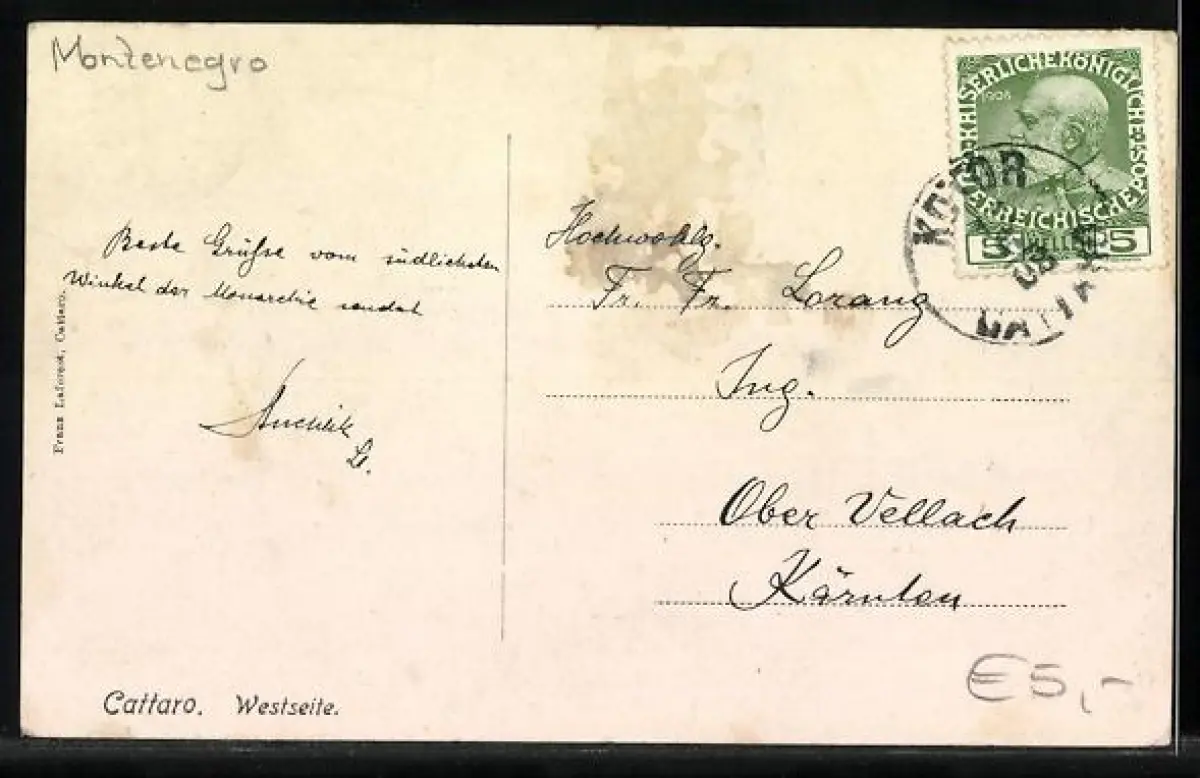 Montenegro
KAISERLICHE KÖNIGLICHE ÖSTERREICHISCHE POST
1908
5 HELLER 5
KOTOR
08
CATTARO
Beste Grüße vom südlichsten
Winkel der Monarchie sendet
Franz Laforest, Cattaro.
Hochwohlg.
Fr. Fr. Lorang
Ing.
Ober Vellach
Kärnten
Cattaro. Westseite.
€5,-